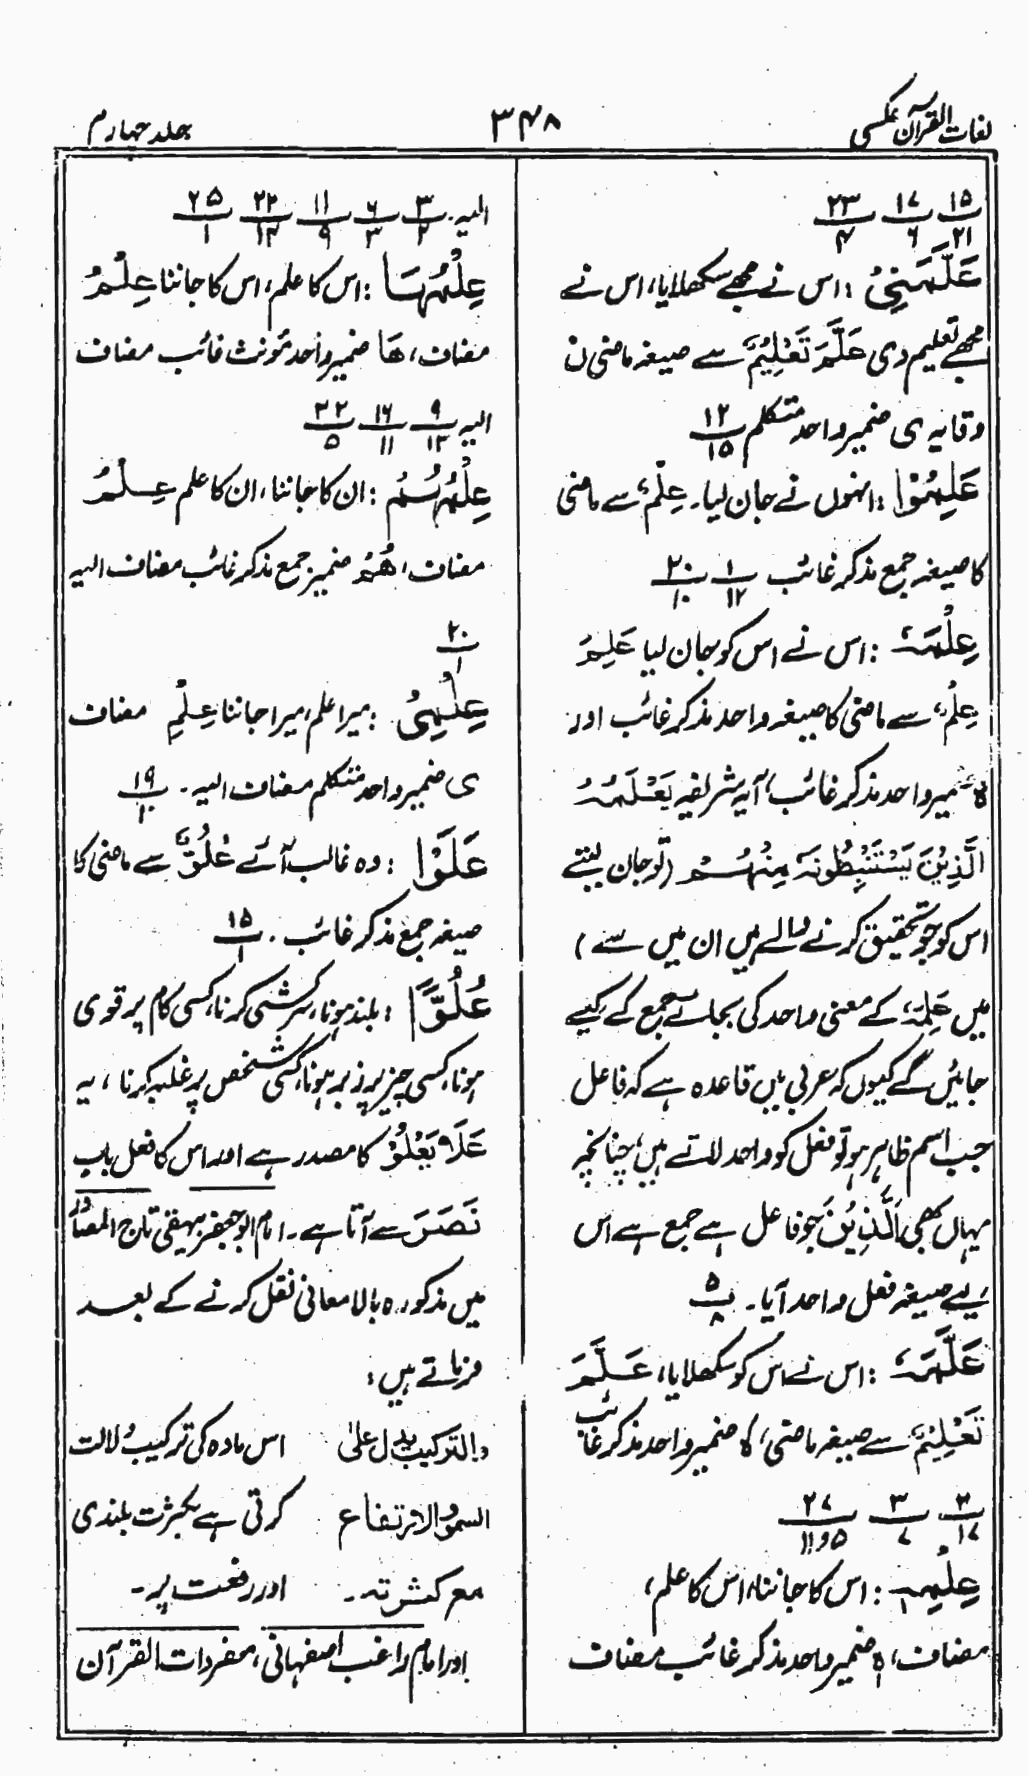 لغات القرآن عکسی
۳۴۸
جلد چہارم
۱۵/۲۱ ۱۷/۶ ۲۳/۴
عَلَّمَنِیْ : اس نے مجھے سکھلایا، اس نے
مجھے تعلیم دی عَلَّمَ تَعْلِیْمٌ سے صیغہ ماضی ن
وقایہ ی ضمیر واحد متکلم ۱۲/۱۵
عَلِمُوْا : انہوں نے جان لیا۔ عِلْمٌ سے ماضی
کا صیغہ جمع مذکر غائب ۱/۱۲ ۲۰/۱۰
عِلْمَہٗ : اس نے اس کو جان لیا عَلِمَ
عِلْمٌ سے ماضی کا صیغہ واحد مذکر غائب اور
ہٗ ضمیر واحد مذکر غائب، آیہ شریفہ یَعْلَمُہُ
الَّذِیْنَ یَسْتَنْۢبِطُوْنَہٗ مِنْہُمْ (تو جان لیتے
اس کو جو تحقیق کرنے والے ہیں ان میں سے)
میں عَلِمَہٗ کے معنی واحد کی بجائے جمع کے کیے
جائیں گے کیوں کہ عربی میں قاعدہ ہے کہ فاعل
جب اسم ظاہر ہو تو فعل کو واحد لاتے ہیں، چنانچہ
یہاں بھی اَلَّذِیْنَ جو فاعل ہے جمع ہے اس
لیے صیغہ فعل واحد آیا۔ ۵/۸
عَلَّمَہٗ : اس نے اس کو سکھلایا، عَلَّمَ
تَعْلِیْمٌ سے صیغہ ماضی، ہٗ ضمیر واحد مذکر غائب
۳/۱۷ ۳/۷ ۲۷/۵و۱۱
عِلْمِہٖ : اس کا جاننا، اس کا علم،
مضاف، ہٖ ضمیر واحد مذکر غائب مضاف
الیہ۔ ۳/۲ ۶/۳ ۱۱/۹ ۲۲/۱۳ ۲۵/۱
عِلْمُہَا : اس کا علم، اس کا جاننا عِلْمُ
مضاف، ھَا ضمیر واحد مؤنث غائب مضاف
الیہ ۹/۱۳ ۱۶/۱۱ ۲۲/۵
عِلْمُہُمْ : ان کا جاننا، ان کا علم عِلْمُ
مضاف، ھُمْ ضمیر جمع مذکر غائب مضاف الیہ
۲۰/۱
عِلْمِیْ : میرا علم، میرا جاننا عِلْمِ مضاف
ی ضمیر واحد متکلم مضاف الیہ۔ ۱۹/۱۰
عَلَوْا : وہ غالب آئے عُلُوٌّ سے ماضی کا
صیغہ جمع مذکر غائب۔ ۱۵/۱
عُلُوًّا : بلند ہونا، سرکشی کرنا، کسی کام پر قوی
ہونا، کسی چیز پر زبر ہونا، کسی شخص پر غلبہ کرنا، یہ
عَلَا یَعْلُوْ کا مصدر ہے اور اس کا فعل باب
نَصَرَ سے آتا ہے۔ امام ابو جعفر بیہقی تاج المصادر
میں مذکورہ بالا معانی نقل کرنے کے بعد
فرماتے ہیں :
والترکیب یدل علیٰ اس مادہ کی ترکیب دلالت
السمو والارتفاع کرتی ہے بکثرت بلندی
مع کثرتہ۔ اور رفعت پر۔
اور امام راغب اصفہانی، مفردات القرآن